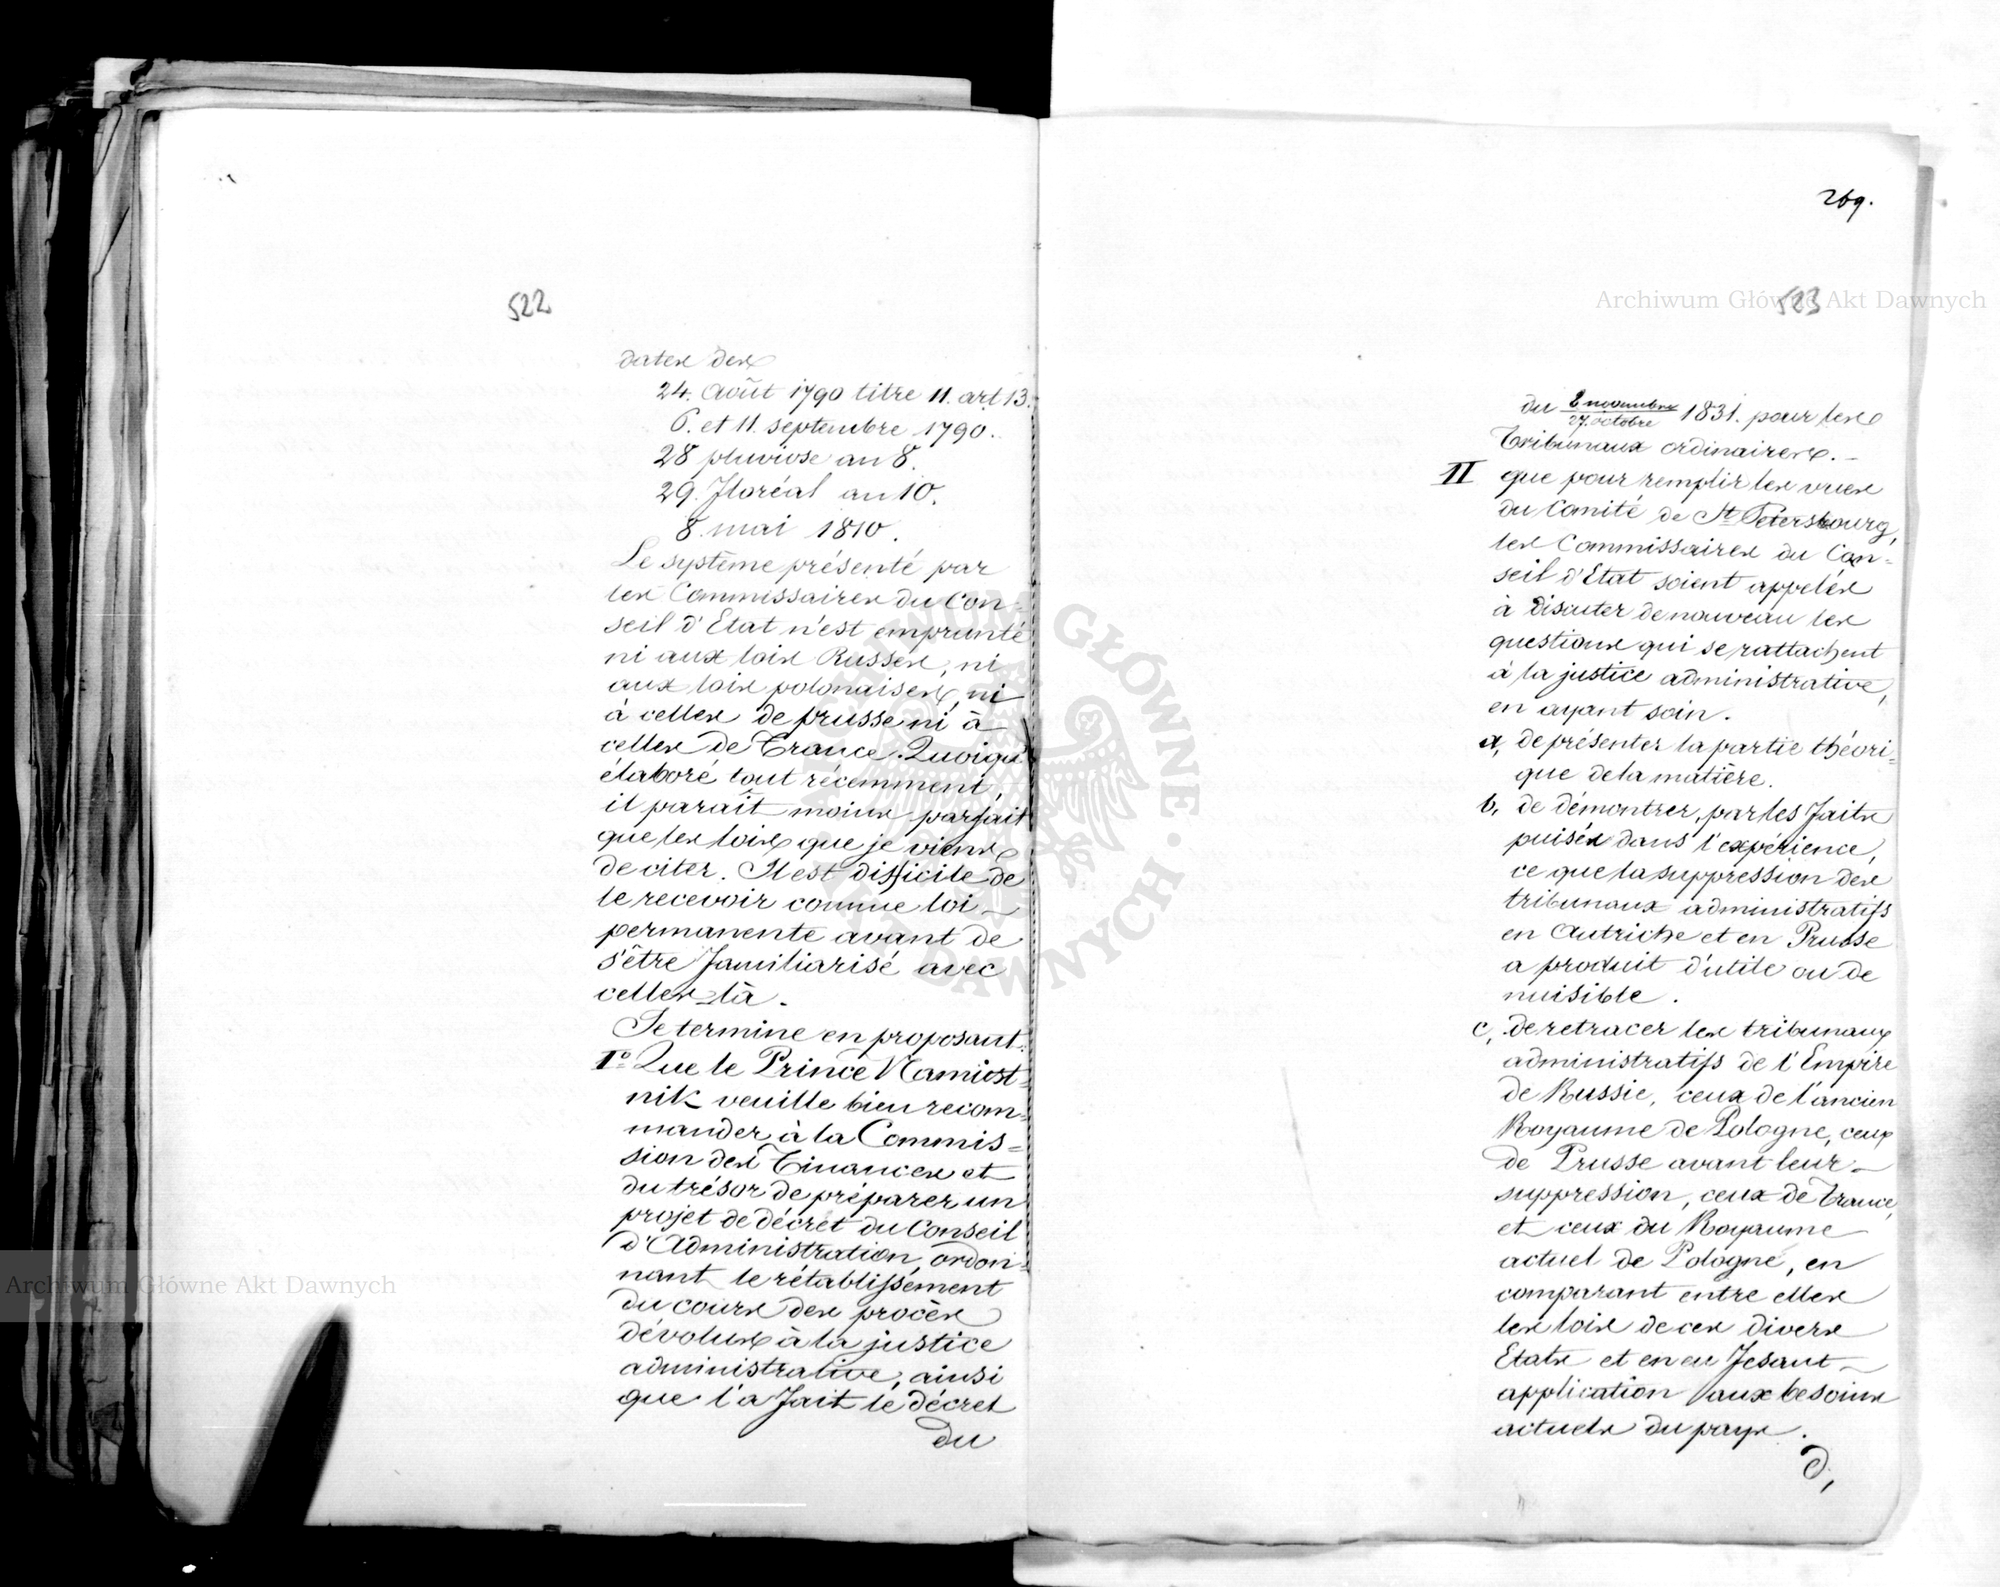 522
dates des
24. Août 1790 titre 11. art 13.
6. et 11. septembre 1790.
28 pluviose an 8.
29. floréal an 10.
8. mai 1810.
Le système présenté par
les Commissaires du Con-
seil d'Etat n'est emprunté
ni aux lois Russes, ni
aux lois polonaises, ni
à celles de prusse ni à
celles de France. Quoiqu'
élaboré tout récemment,
il paraît moins parfait
que les lois que je viens
de citer. Il est difficile de
le recevoir comme loi
permanente avant de
s'être familiarisé avec
celles-là.
Je termine en proposant:
I° Que le Prince Namiest-
nik veuille bien recom-
mander à la Commis-
sion des Finances et
du trésor de préparer un
projet de décret du Conseil
d'Administration, ordon-
nant le rétablissement
du cours des procès
dévolus à la justice
administrative, ainsi
que l'a fait le décret
du
269.
523
du 8 novembre / 27. octobre 1831. pour les
Tribunaux ordinaires.
II que pour remplir les vues
du Comité de St Petersbourg,
les Commissaires du Con-
seil d'Etat soient appelés
à discuter de nouveau les
questions qui se rattachent
à la justice administrative,
en ayant soin.
a, de présenter la partie théori-
que de la matière.
b, de démontrer, par les faits
puisés dans l'expérience,
ce que la suppression des
tribunaux administratifs
en Autriche et en Prusse
a produit d'utile ou de
nuisible.
c, de retracer les tribunaux
administratifs de l'Empire
de Russie, ceux de l'ancien
Royaume de Pologne, ceux
de Prusse avant leur
suppression, ceux de France,
et ceux du Royaume
actuel de Pologne, en
comparant entre elles
les lois de ces divers
Etats et en en fesant
application aux besoins
actuels du pays.
d,
Archiwum Główne Akt Dawnych
Archiwum Główne Akt Dawnych